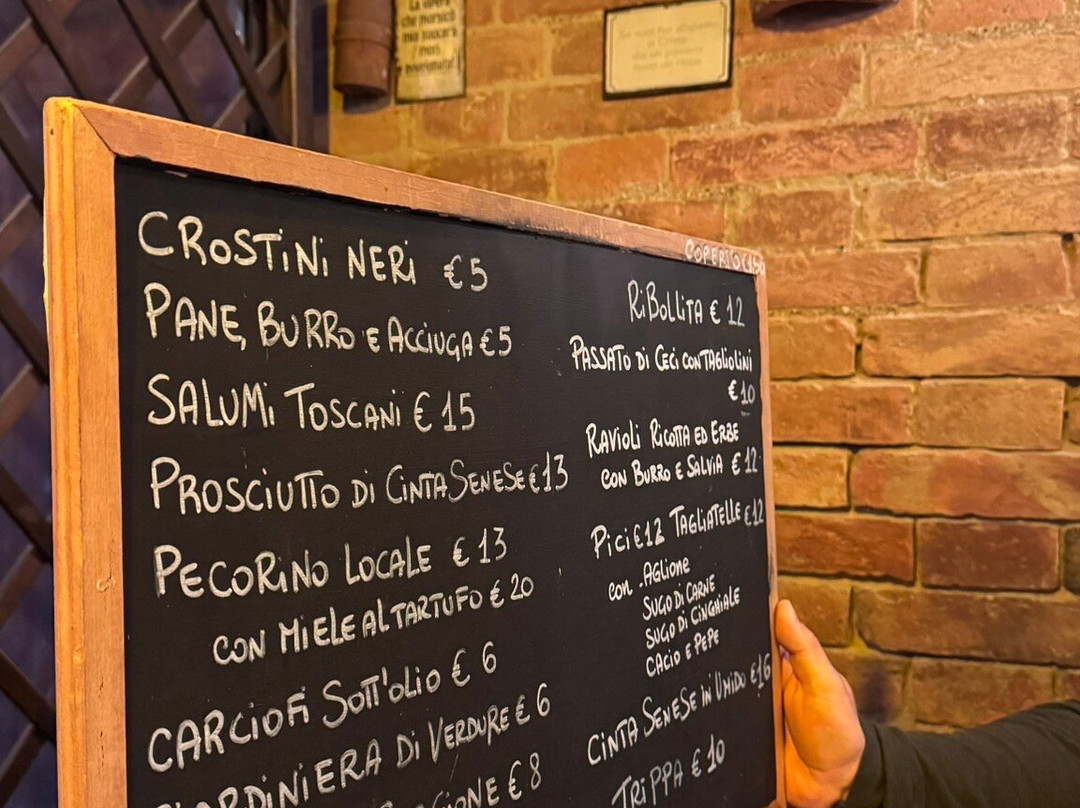 CROSTINI NERI €5
PANE, BURRO E ACCIUGA €5
SALUMI TOSCANI € 15
PROSCIUTTO DI CINTA SENESE €13
PECORINO LOCALE € 13
CON MIELE AL TARTUFO € 20
CARCIOFI SOTT'OLIO € 6
GIARDINIERA DI VERDURE € 6
€ 8
COPERTO €1.50
RIBOLLITA € 12
PASSATO DI CECI CON TAGLIOLINI
€ 10
RAVIOLI RICOTTA ED ERBE
CON BURRO E SALVIA € 12
PICI €12 TAGLIATELLE €12
CON . AGLIONE
SUGO DI CARNE
SUGO DI CINGHIALE
CACIO E PEPE
CINTA SENESE IN UMIDO €16
TRIPPA € 10